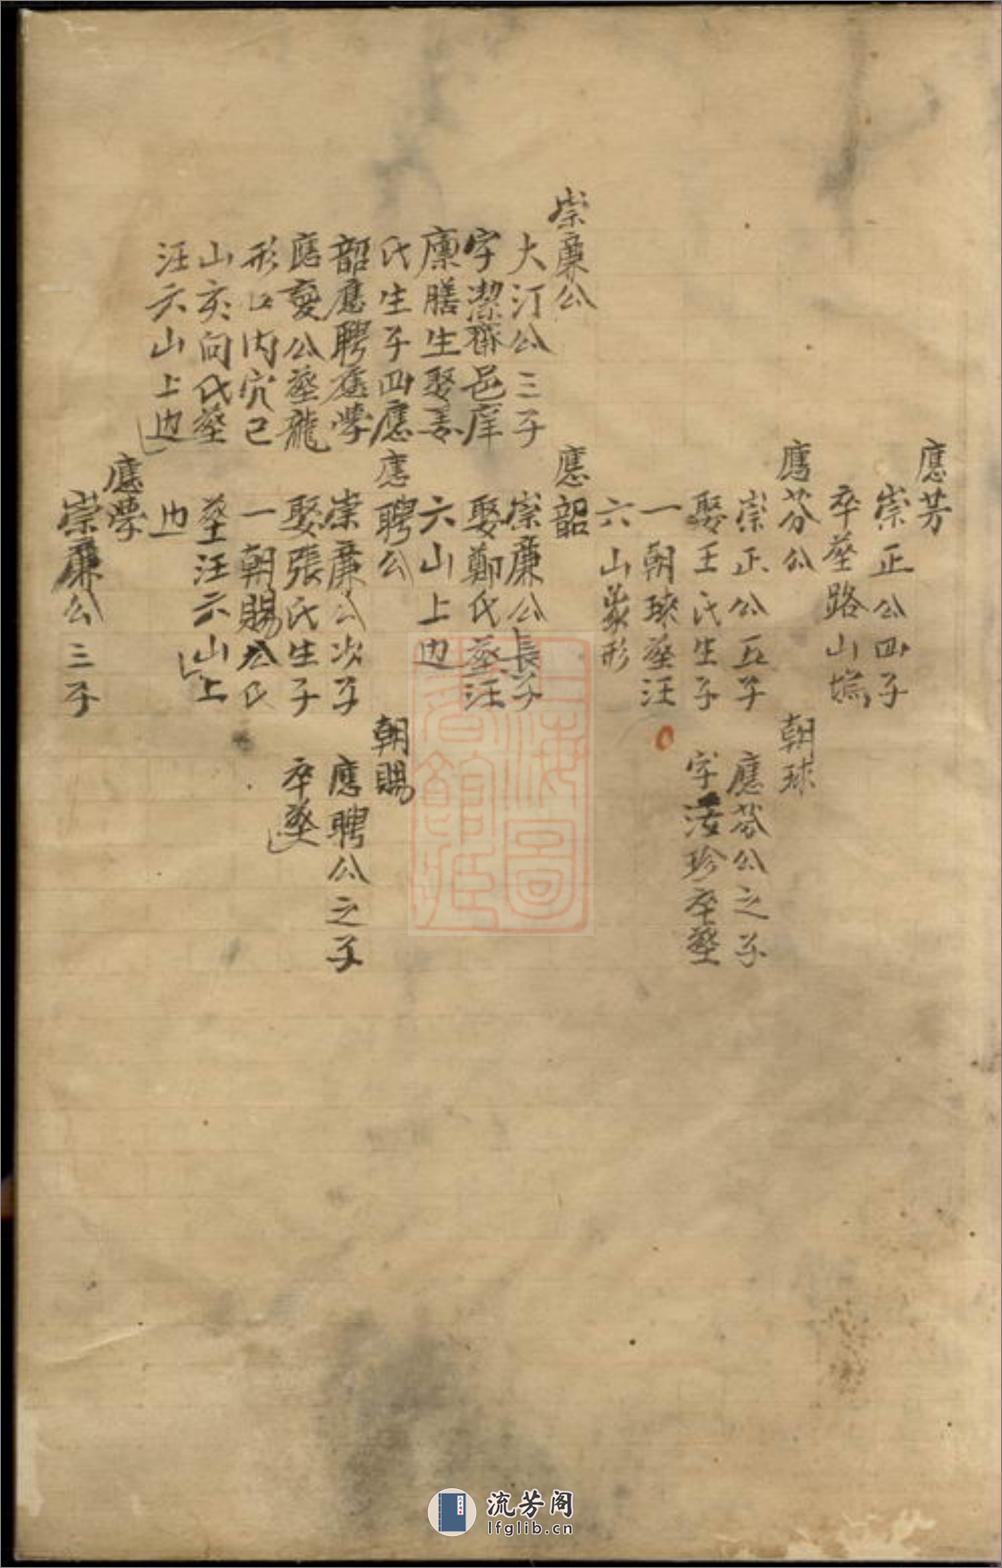 應芳
崇正公四子
卒葬路山塢
應芬公
崇正公五子
娶王氏生子
一朝球葬汪
六山象形
朝球
應芬公之子
字渼珍卒葬
崇廉公
大汀公三子
字潔齋邑庠
廪膳生娶姜
氏生子四應
韶應聘應學
應夔公葬龍
形口内穴己
山亥向氏葬
汪六山上边
應韶
崇廉公長子
娶鄭氏葬汪
六山上边
應聘公
崇廉公次子
娶張氏生子
一朝賜公氏
葬汪六山上
边
朝賜
應聘公之子
卒葬
應學
崇廉公三子
上海圖書館藏
流芳阁
lfglib.cn